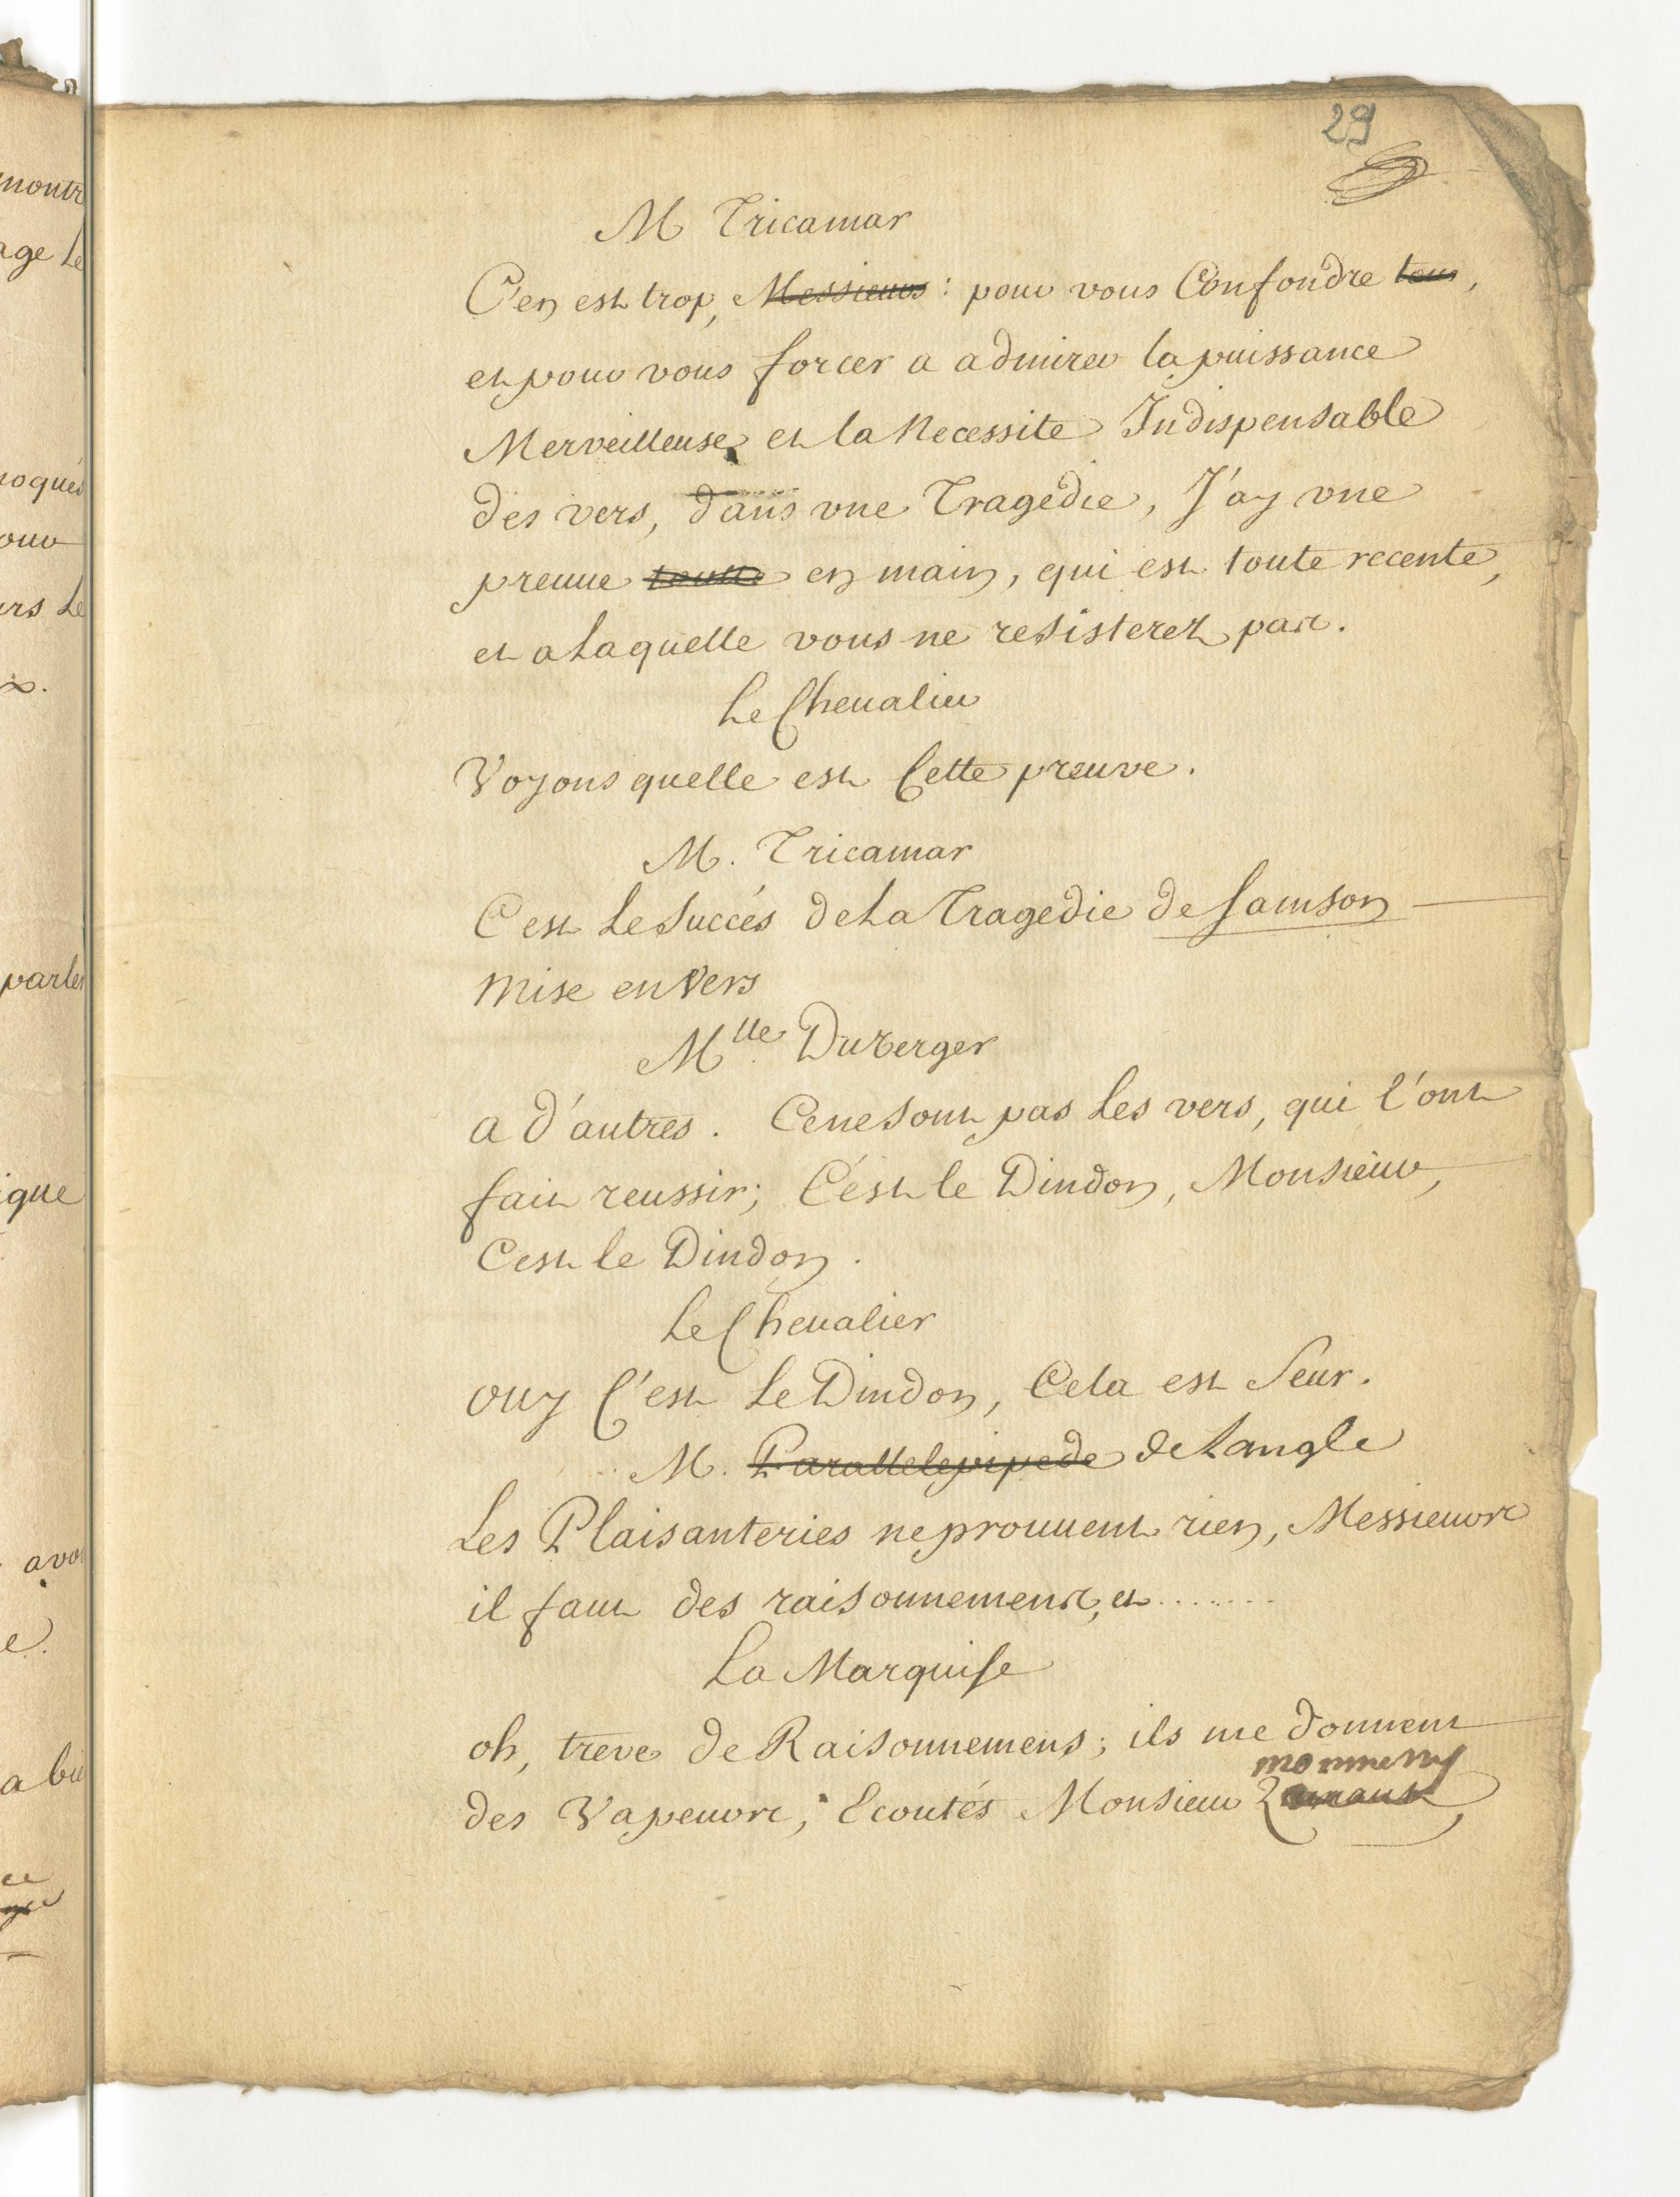 29
montr
age Le
oqués
our
urs Le
x.
parler
ique
avoi
e.
a bie
M Tricamar
C'en est trop, Messieurs : pour vous Confondre tous,
et pour vous forcer a admirer la puissance
Merveilleuse, et la Necessité Indispensable
des vers, dans une Tragédie, J'ay une
preuue toutte en main, qui est toute recente,
et a Laquelle vous ne resisterez pas.
Le Cheualier
Voyons quelle est Cette preuve.
M. Tricamar
C'est Le Succés de La Tragedie de Samson
mise en Vers
Mlle Duverger
a d'autres. Ce ne sont pas Les vers, qui l'ont
fait reussir; C'est le Dindon, Monsieur,
C'est le Dindon.
Le Cheualier
ouy C'est Le Dindon, Cela est Seur.
M. Parallelepipede de Langle
Les Plaisanteries ne prouuent rien, Messieurs
il faut des raisonnemens, et ........
La Marquise
oh, treve de Raisonnemens; ils me donnent
des Vapeurs; Ecoutés Monsieur